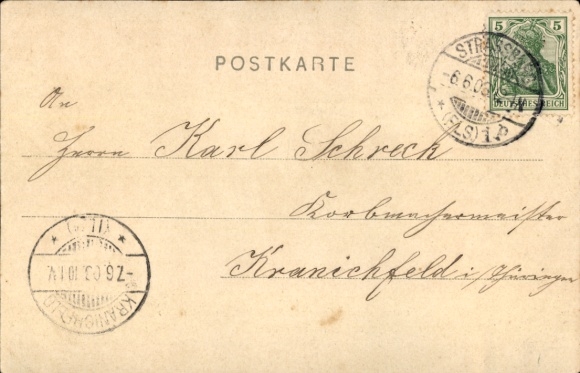 POSTKARTE
5 5
DEUTSCHES REICH
STRASSBURG
-6.6.03
* (ELS) 1 b
An
Herrn Karl Schreck
Korbmachermeister
Kranichfeld i/Thüringen
* (ILM) *
-7.6.03.10-11V.
KRANICHFELD